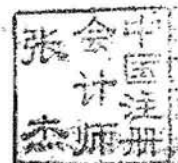 中国注册
会计师
张杰